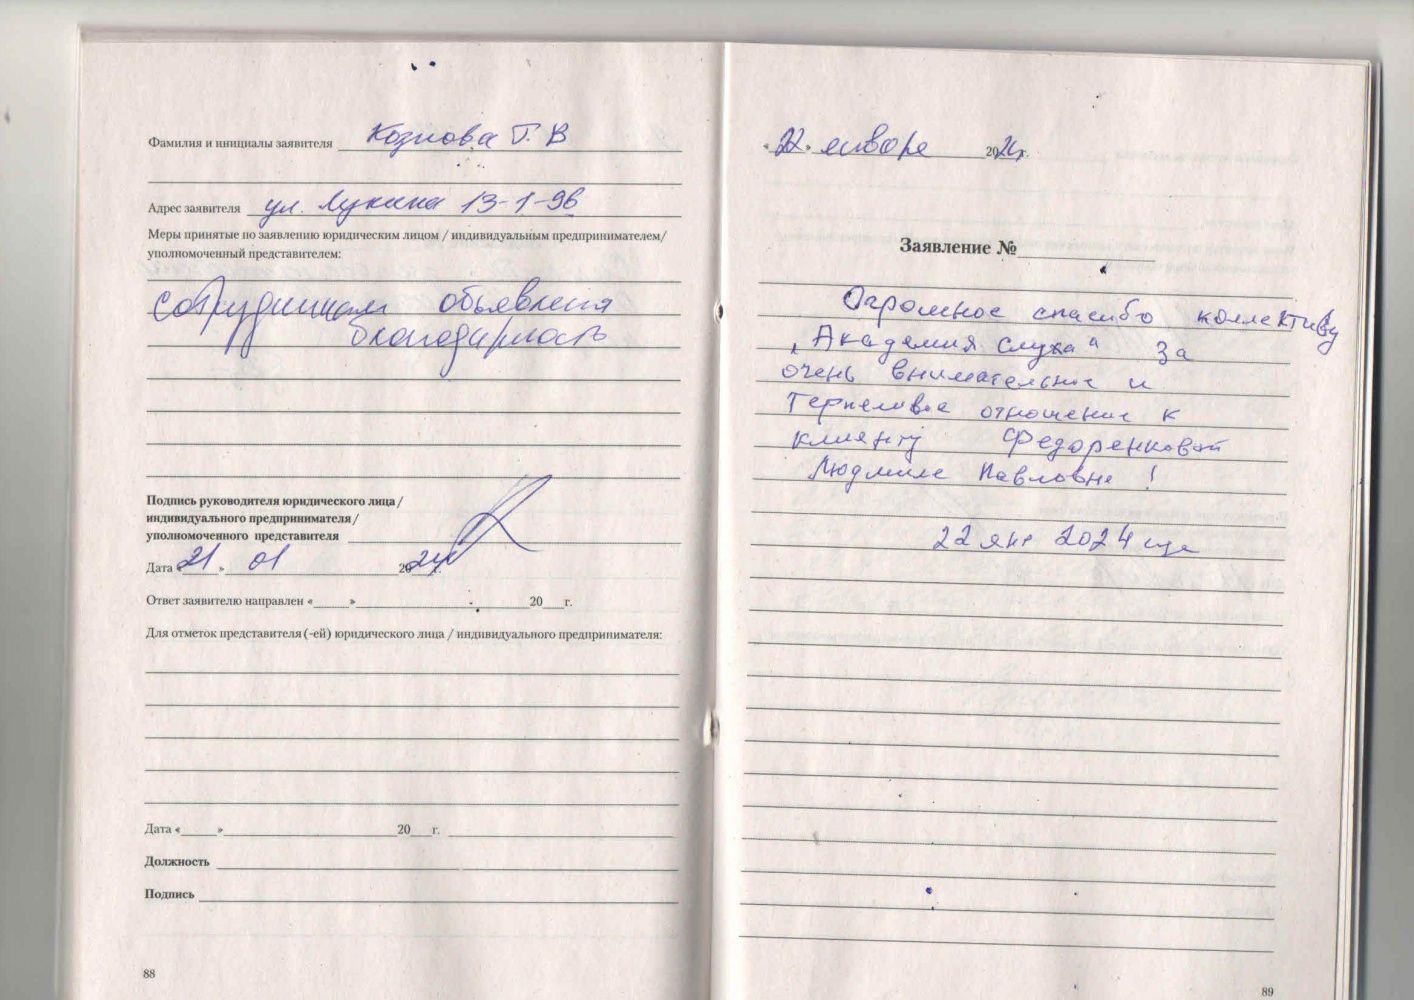 Фамилия и инициалы заявителя Козлова Г. В
Адрес заявителя ул. Лукина 13-1-96
Меры принятые по заявлению юридическим лицом / индивидуальным предпринимателем/
уполномоченный представителем:
сотрудникам объявлена
благодарность
Подпись руководителя юридического лица /
индивидуального предпринимателя /
уполномоченного представителя
Дата «21» 01 2024г.
Ответ заявителю направлен «___»___20___г.
Для отметок представителя (-ей) юридического лица / индивидуального предпринимателя:
Дата «___»___20___г.
Должность
Подпись
88
«22» января 2024г.
Заявление №
Огромное спасибо коллективу
„Академия слуха" за
очень внимательное и
терпеливое отношение к
клиенту Федоренковой
Людмиле Павловне !
22 янв 2024
89